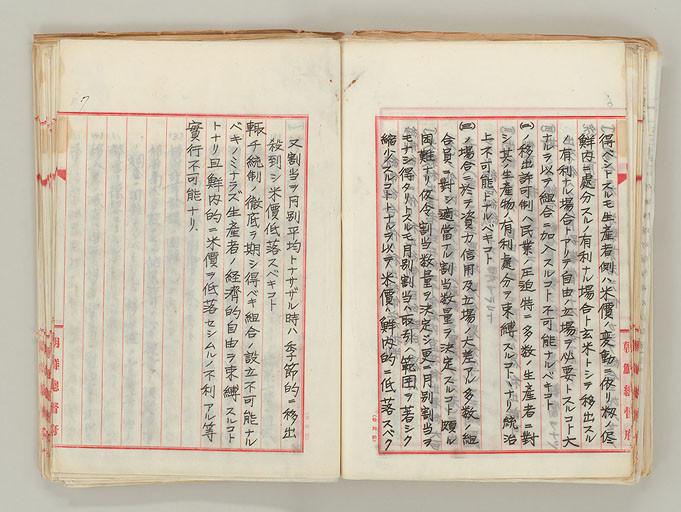 得ベシトスルモ生産者側ハ米價ノ変動ニ依リ籾ノ侭
鮮内ニ處分スルノ有利ナル場合ト玄米トシテ移出スル
ノ有利ナル場合トアリテ自由ノ立場ヲ必要トスルコト大
ナルヲ以テ組合ニ加入スルコト不可能ナルベキコト
(二)ノ移出許可制ハ民業ノ圧迫特ニ多数ノ生産者ニ對
シ其ノ生産物ノ有利處分ヲ束縛スルコトヽナリ統治
上不可能トナルベキコト
(三)ノ場合ニ於テ資力信用及立場ノ大差アル多数ノ組
合員ニ對シ適當ナル割当数量ヲ決定スルコト頗ル
困難ナリ仮令割当数量ヲ決定シ更ニ月別割当ヲ
モナシ得タリトスルモ月別割当ハ取引ノ範囲ヲ若シク
縮少スルコトヽナルヲ以テ米價ハ鮮内的ニ低落スベク
朝鮮総督府
7
又割当ヲ月別平均トナサザル時ハ季節的ニ移出
殺到シ米價低落スベキコト
輙チ統制ノ徹底ヲ期シ得ベキ組合ノ設立不可能ナル
ベキノミナラズ生産者ノ経済的自由ヲ束縛スルコト
トナリ且鮮内的ニ米價ヲ低落セシムルノ不利アル等
實行不可能ナリ
朝鮮総督府